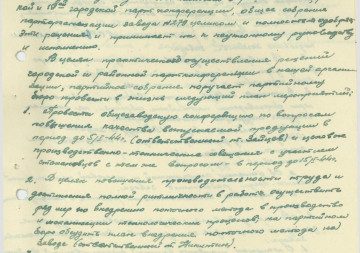 кой и 10ой городской партконференций, общее собрание
парторганизации завода №572 целиком и полностью одобряет
эти решения и принимает их к неуклонному руководству
и исполнению.
В целях практического осуществления решений
городской и районной партконференции в нашей органи-
зации, партийное собрание поручает партийному
бюро провести в жизнь следующий план мероприятий:
1. провести общезаводскую конференцию по вопросам
повышения качества выпускаемой продукции в
период до (ответственный т. Зайцев) и цеховые
производственно-технические совещания с участием
стахановцев с теми же вопросами в период до
2. В целях повышения производительности труда и
достижения полной ритмичности в работе осуществить
ряд мер по внедрению поточного метода в производство
и механизации технологических процессов, на партийном
бюро обсудить план внедрения поточного метода на
заводе (ответственный т.